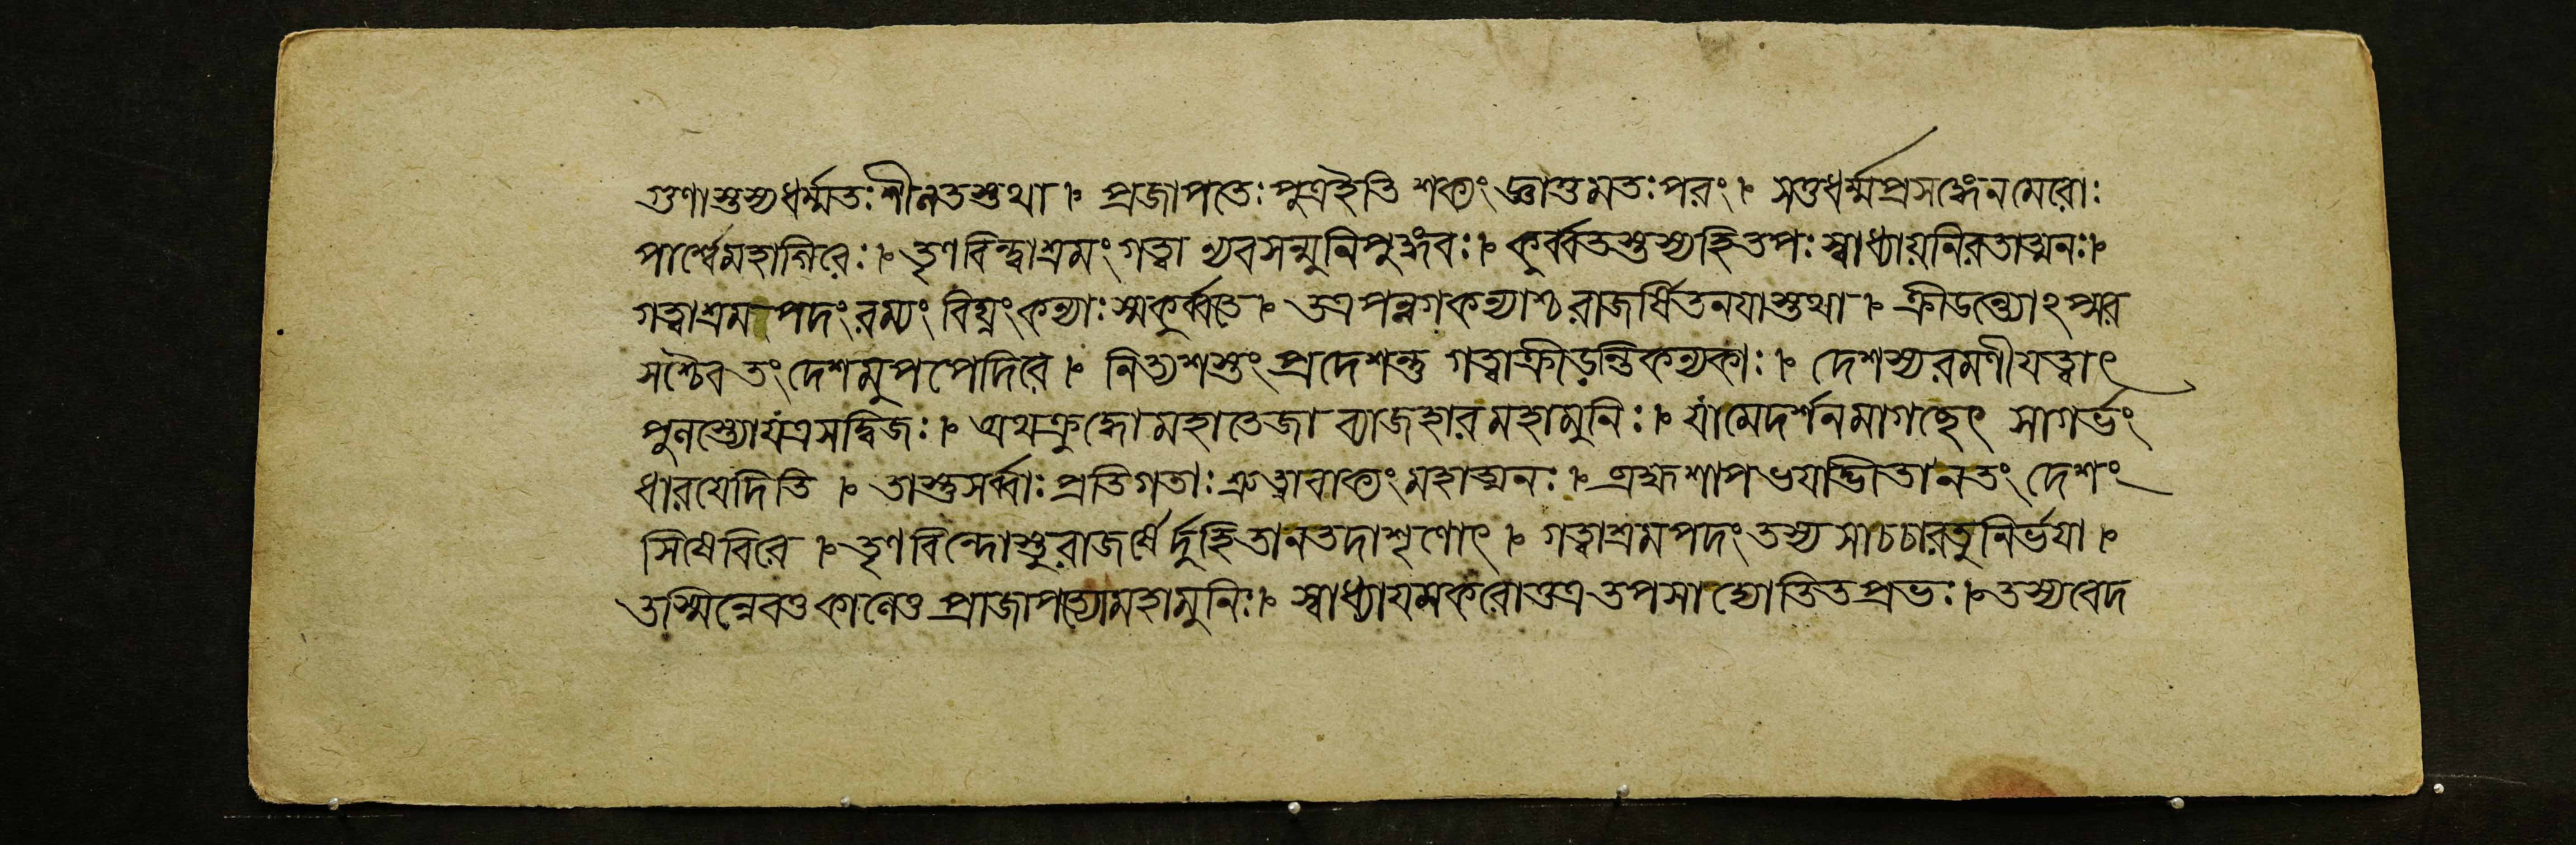 গুণাস্তস্যধর্ম্মতঃশীলতস্তথা । প্রজাপতেঃপুত্রইতি শক্যং জ্ঞাতুমতঃপরং । সতুধর্ম্মপ্রসঙ্গেনমেরোঃ
পার্শ্বেমহাগিরেঃ । তৃণবিন্দ্বাশ্রমংগত্বা ন্যবসন্মুনিপুঙ্গবঃ । কুর্ব্বতস্তস্যহিতপঃস্বাধ্যায়নিরতাত্মনঃ ।
গত্বাশ্রমপদংরম্যং বিঘ্নংকন্যাঃস্মকুর্ব্বতে । তত্রপন্নগকন্যাশ্চরাজর্ষিতনযাস্তথা । ক্রীডন্ত্যোঽপ্সর
সশ্চৈবতংদেশমুপপেদিরে । নিত্যশস্তংপ্রদেশন্তু গত্বাক্রীড়ন্তিকন্যকাঃ । দেশস্যরমণীযত্বাৎ
পুলস্ত্যোযত্রসদ্বিজঃ । অথক্রুদ্ধোমহাতেজা ব্যাজহারমহামুনিঃ । যামেদর্শনমাগচ্ছেৎ সাগর্ভং
ধারযেদিতি । তাস্তুসর্ব্বাঃপ্রতিগতাঃশ্রুত্বাবাক্যংমহাত্মনঃ । ব্রহ্মশাপভযাদ্ভীতানতংদেশং
সিষেবিরে । তৃণবিন্দোস্তুরাজর্ষের্দুহিতানতদাশৃণোৎ । গত্বাশ্রমপদংতস্য সাচচারতুনির্ভযা ।
তস্মিন্নেবতুকালেতু প্রাজাপত্যোমহামুনিঃ । স্বাধ্যাযমকরোত্তত্র তপসাদ্যোতিতপ্রভঃ । তস্যবেদ